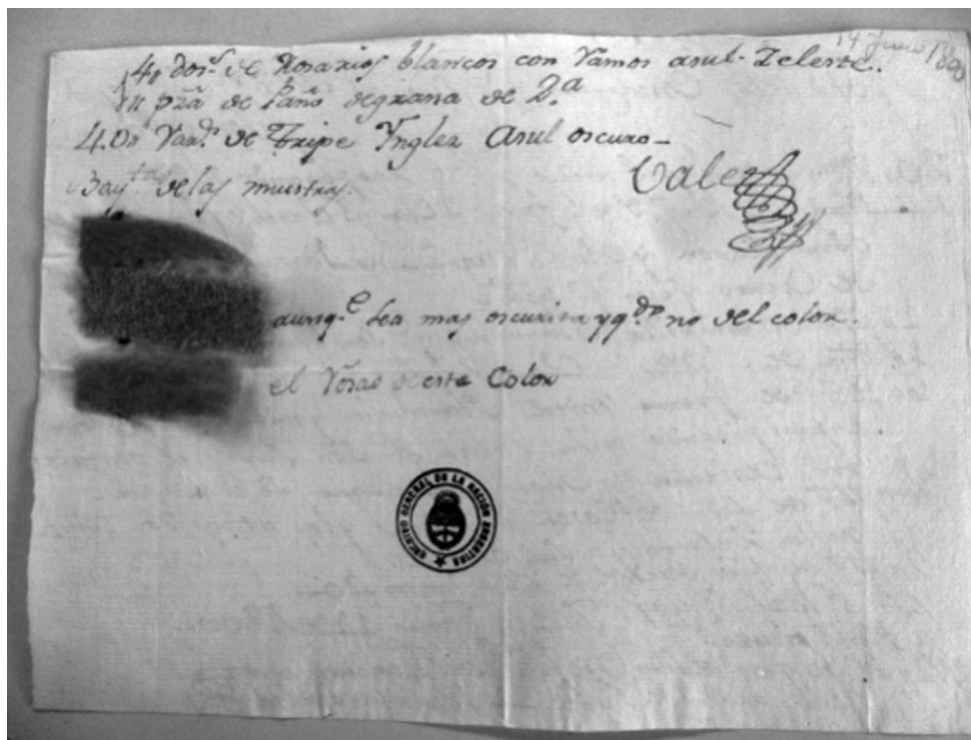 14 Junio 1800
4 dos.s de Rosarios blancos con Ramos asul Zeleste.
pza de Paño degrana de 2.a
4.On Var.s de Tripe Yngles Asul oscuro_
Bay.tas delas muestras.
Vale
aunq.e sea mas oscurita y q.do no del color.
el de este Color
ARCHIVO GENERAL DE LA NACIÓN ARGENTINA